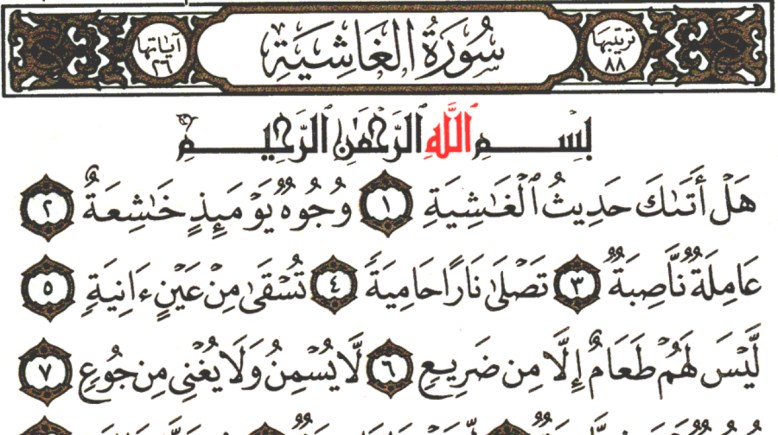 ترتيبها ٨٨ سُورَةُ الغَاشِيَةِ آياتها ٢٦
بِسْمِ ٱللَّهِ ٱلرَّحْمَٰنِ ٱلرَّحِيمِ
هَلْ أَتَىٰكَ حَدِيثُ ٱلْغَٰشِيَةِ ١ وُجُوهٌ يَوْمَئِذٍ خَٰشِعَةٌ ٢
عَامِلَةٌ نَّاصِبَةٌ ٣ تَصْلَىٰ نَارًا حَامِيَةً ٤ تُسْقَىٰ مِنْ عَيْنٍ ءَانِيَةٍ ٥
لَّيْسَ لَهُمْ طَعَامٌ إِلَّا مِن ضَرِيعٍ ٦ لَّا يُسْمِنُ وَلَا يُغْنِى مِن جُوعٍ ٧